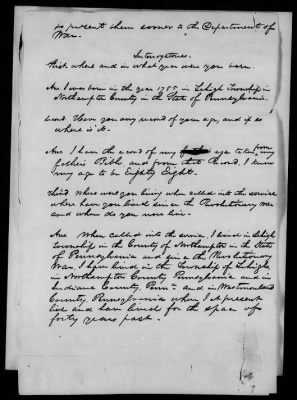 to present them sooner to the Department of
War.
Interrogatories.
First where and in what year were you born.
Ans I was born in the year 1755 in Lehigh Township in
Northampton County in the State of Pennsylvania.
Second. Have you any record of your age, and if so
where is it.
Ans I have the record of my age taken from my
fathers Bible and from that Record, I know
my age to be Eighty Eight.
Third Where were you living when called into the service
where have you lived since the Revolutionary war
and where do you now live.
Ans When called into the service, I lived in Lehigh
Township in the County of Northampton in the State
of Pennsylvania and since the Revolutionary
War I have lived in the Township of Lehigh,
in Northampton County Pennsylvania and in
Indiana County, Penna and in Westmoreland
County, Pennsylvania where I at present
live and have lived for the space of
forty years past.